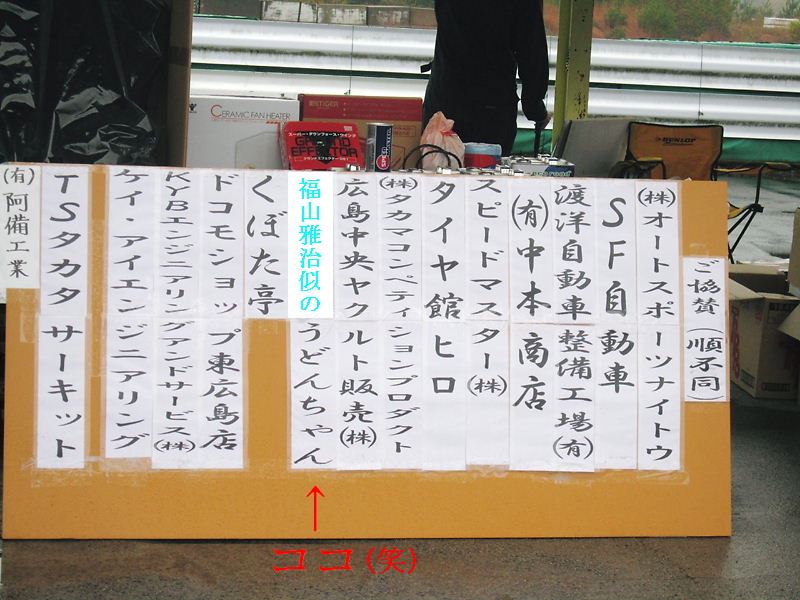 ご協賛(順不同)
(株)オートスポーツナイトウ
SF自動車
渡洋自動車整備工場(有)
(有)中本商店
スピードマスター(株)
タイヤ館ヒロ
(株)タカマコンペティションプロダクト
広島中央ヤクルト販売(株)
福山雅治似のうどんちゃん
くぼた亭
ドコモショップ東広島店
KYBエンジニアリングアンドサービス(株)
ケイ・アイエンジニアリング
TSタカタサーキット
(有)阿備工業
CERAMIC FAN HEATER
スーパー・ダウンフォース・ウイング
GROUND EFFECTOR
DUNLOP
↑
ココ(笑)